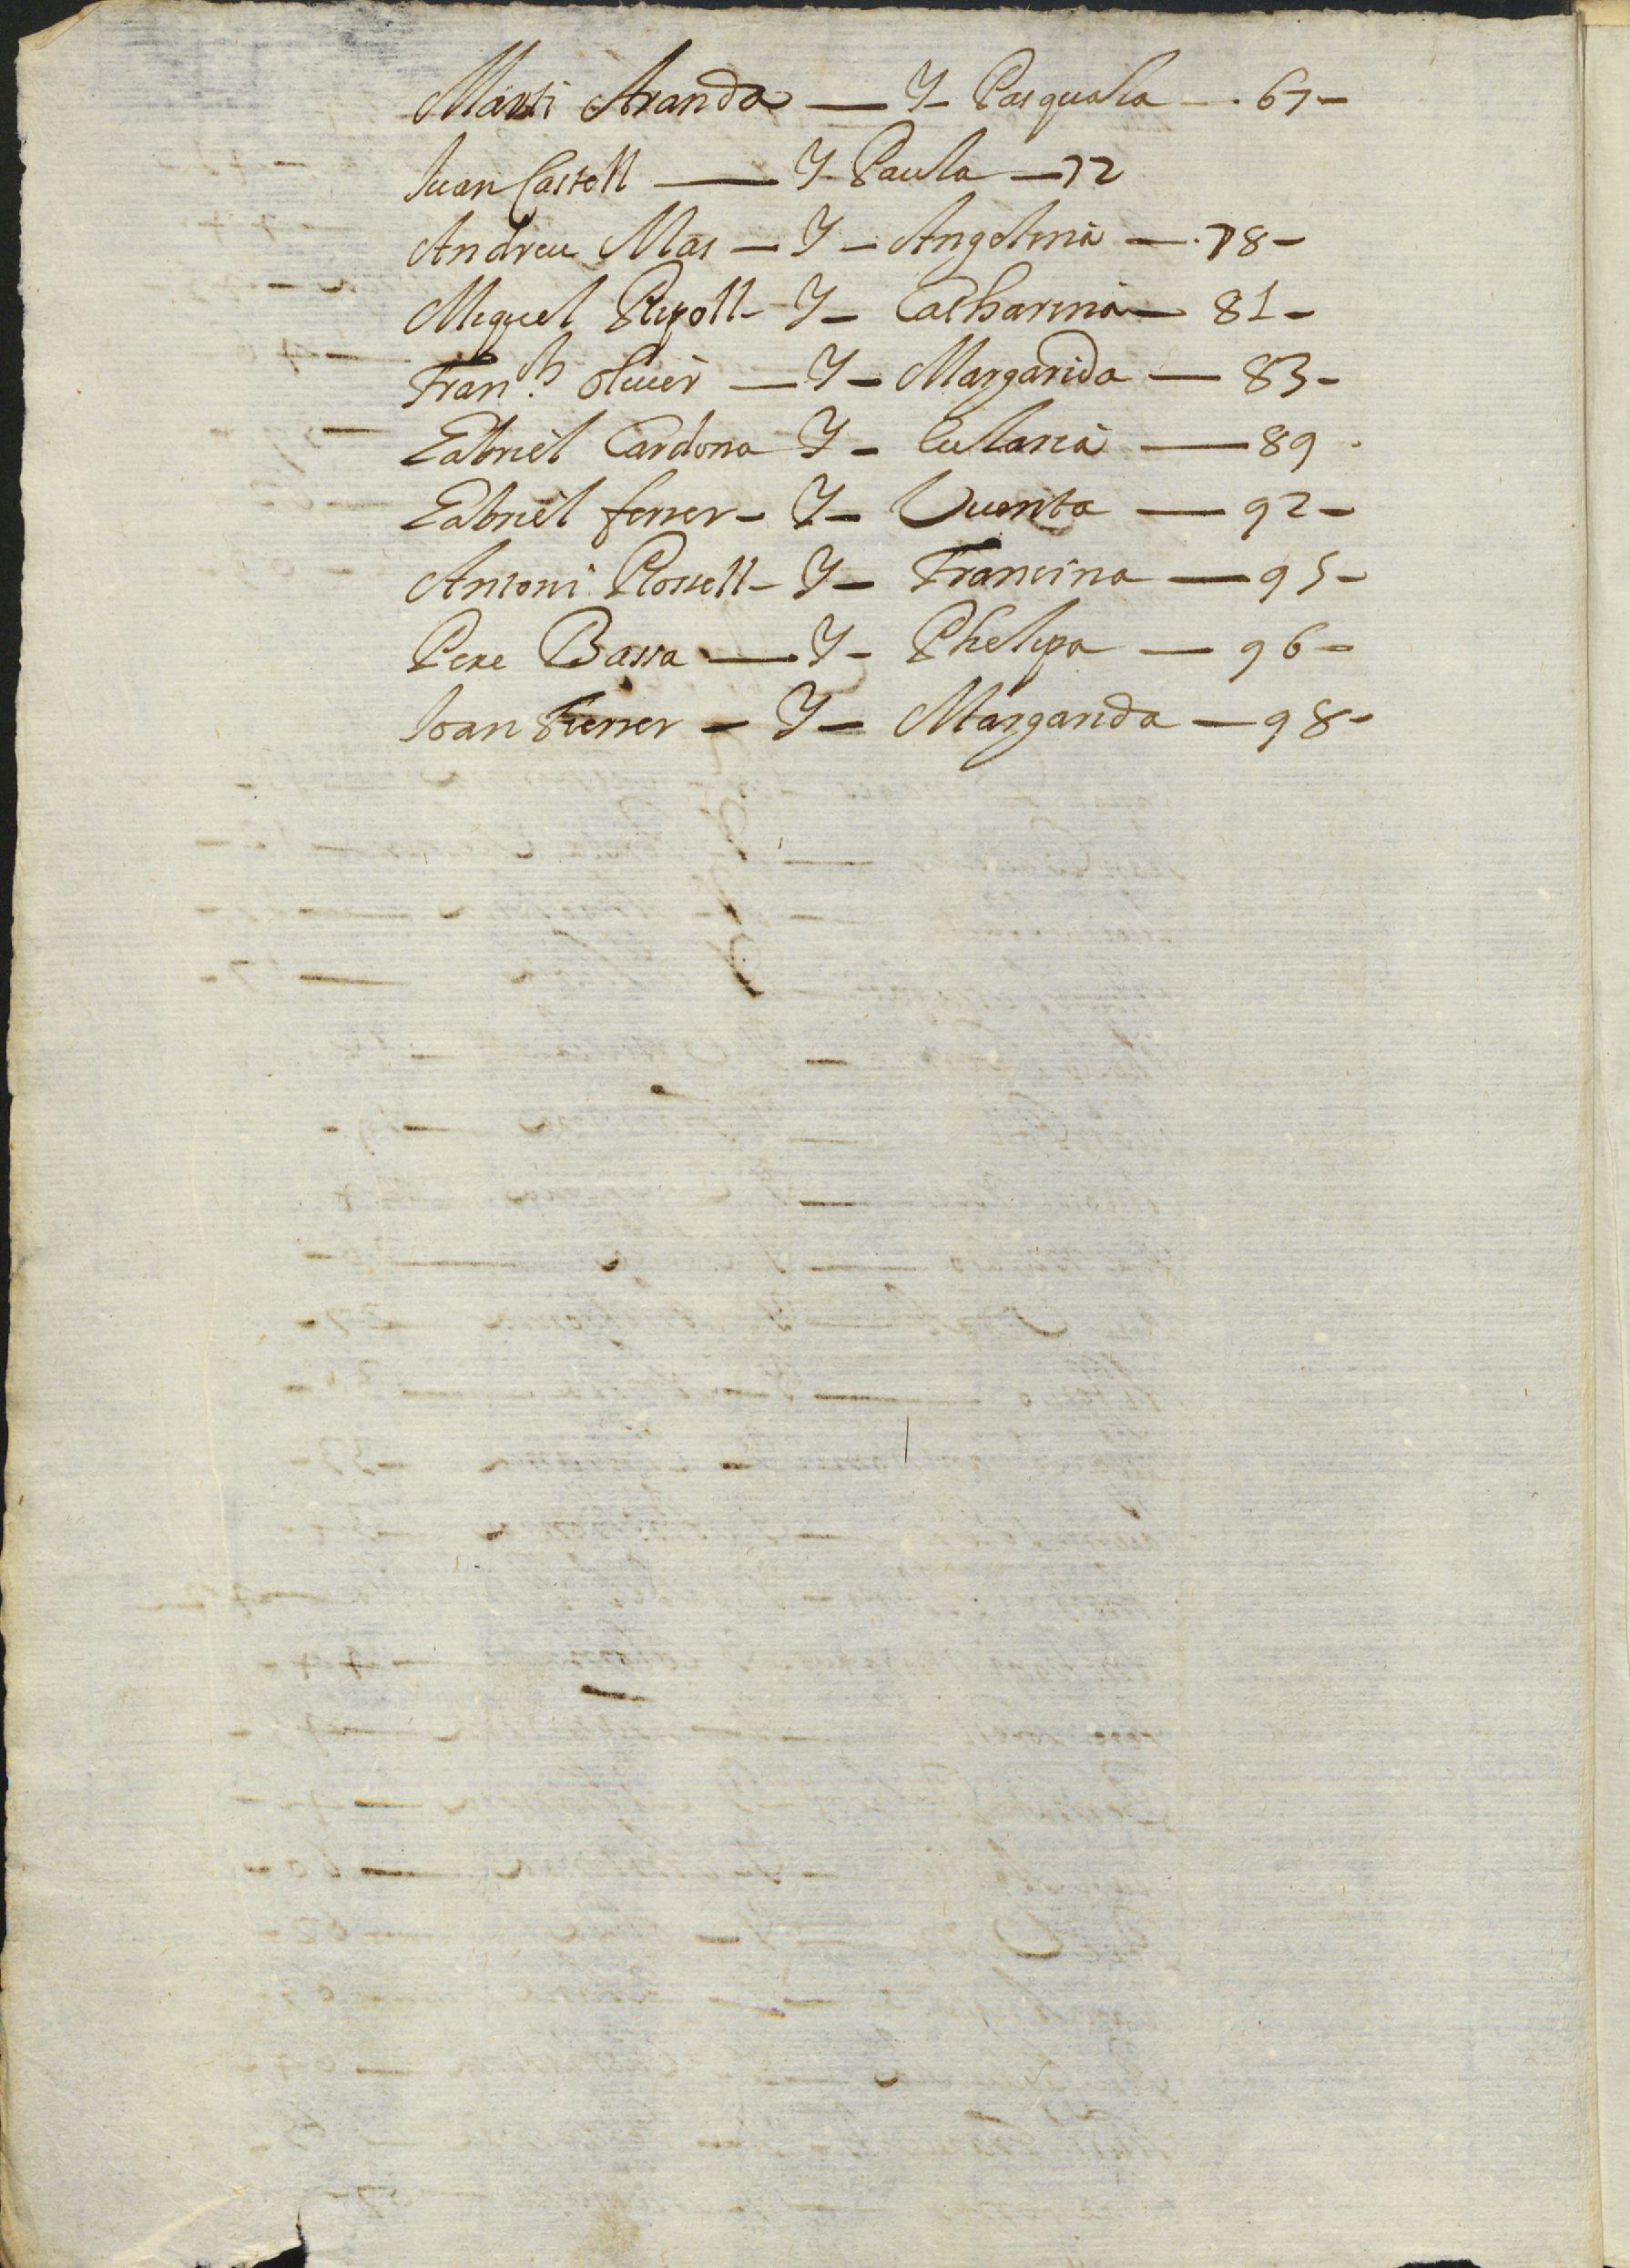 Marti Aranda — Y — Pasquala — 67 —
Juan Castell — Y — Paula — 72
Andreu Mas — Y — Angelina — 78 —
Miquel Ripoll — Y — Catharina — 81 —
Fran.ch Oliuer — Y — Margarida — 83 —
Gabriel Cardona Y — Eularia — 89
Gabriel ferrer — Y — — 92 —
Antoni Rossell — Y — Francina — 95 —
Pere Bassa — Y — Phelipa — 96 —
Joan Ferrer — Y — Margarida — 98 —